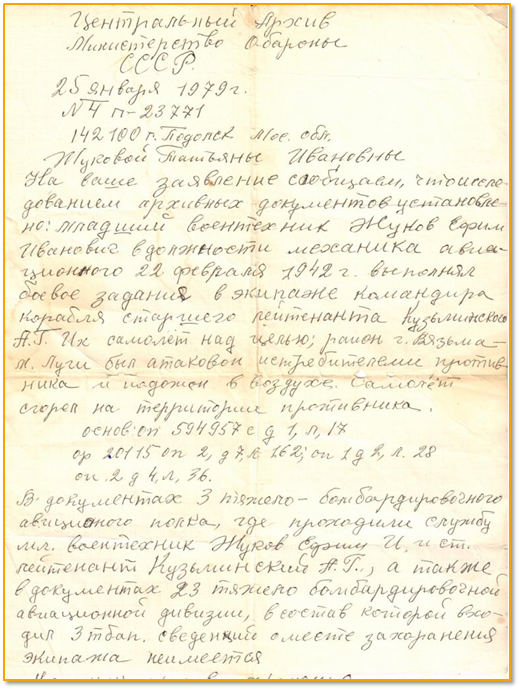 Центральный Архив
Министерство Обароны
СССР.
25 января 1979 г.
№ 4 п-23771
142100 г. Подопск Мос. обл.
Жуковой Татьяны Ивановны
На ваше заявление сообщаем, что иссле-
дованием архивных документов установле-
но: младший воентехник Жуков Ефим
Иванович в должности механика авиа-
ционного 22 февраля 1942 г. выполнял
боевое задания в экипаже командира
корабля старшего лейтенанта Кузьминского
А.Г. Их самолёт над целью; район г. Вязьма-
Луги был атакован истребителеми против-
ника и подожон в воздухе. Самолёт
сгорел на территории противника.
основ: оп 594957с д 1, л, 17
ор 20115 оп 2, д 7, л 162; оп 1 д 2, л. 28
оп. 2 д 4, л, 36.
В документах 3 тяжело-бомбардировочного
авиционого полка, где проходили службу
мл. воентехник Жуков Ефим И. и ст.
лейтенант Кузьминский А.Г., а также
в документах 23 тяжело бомбардировочной
авиационной дивизии, в состав которой вхо-
дил 3 тбап. сведений о месте захоранения
экипажа неимеется